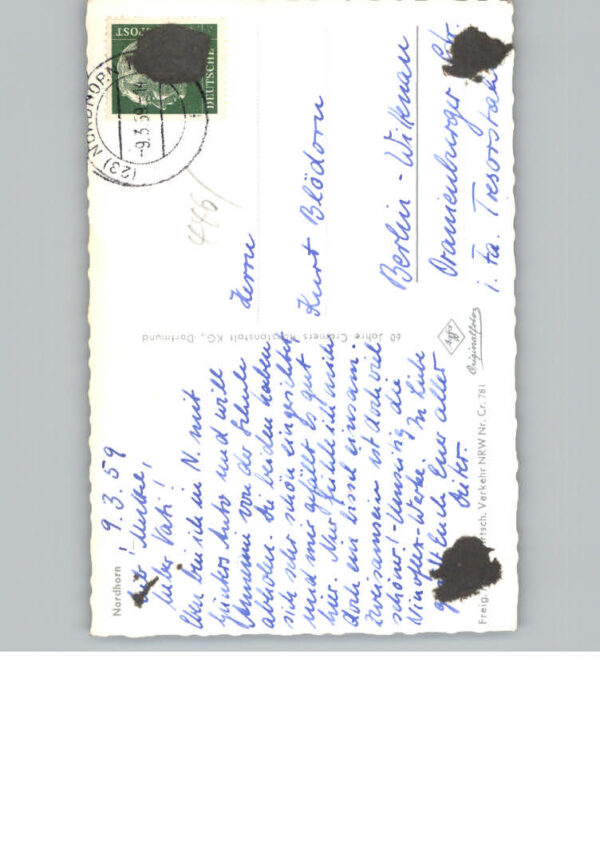 Nordhorn
9.3.59
Mutti,
lieber Vati!
Nun bin ich in N. mit
Günters Auto und will
Annemie von der Schule
abholen. Die beiden haben
sich sehr schön eingerichtet
und mir gefällt es gut
hier. Nur fühle ich mich
doch ein bissl einsam.
Zweisamsein ist doch viel
schöner! - Umseitig die
Nino-Werke. In Liebe
grüßt Euch Euer alter
Freig. Verkehr NRW Nr. Cr. 781
60 Jahre Cramers Kunstanstalt KG., Dortmund
Agfa
Originalfoto
DEUTSCHE
POST
(23) NORDHORN
-9.3.59
446/
Herrn
Kurt Blödorn
Berlin - Wittenau
Oranienburger Str.
i. Fa. Tresorstahl